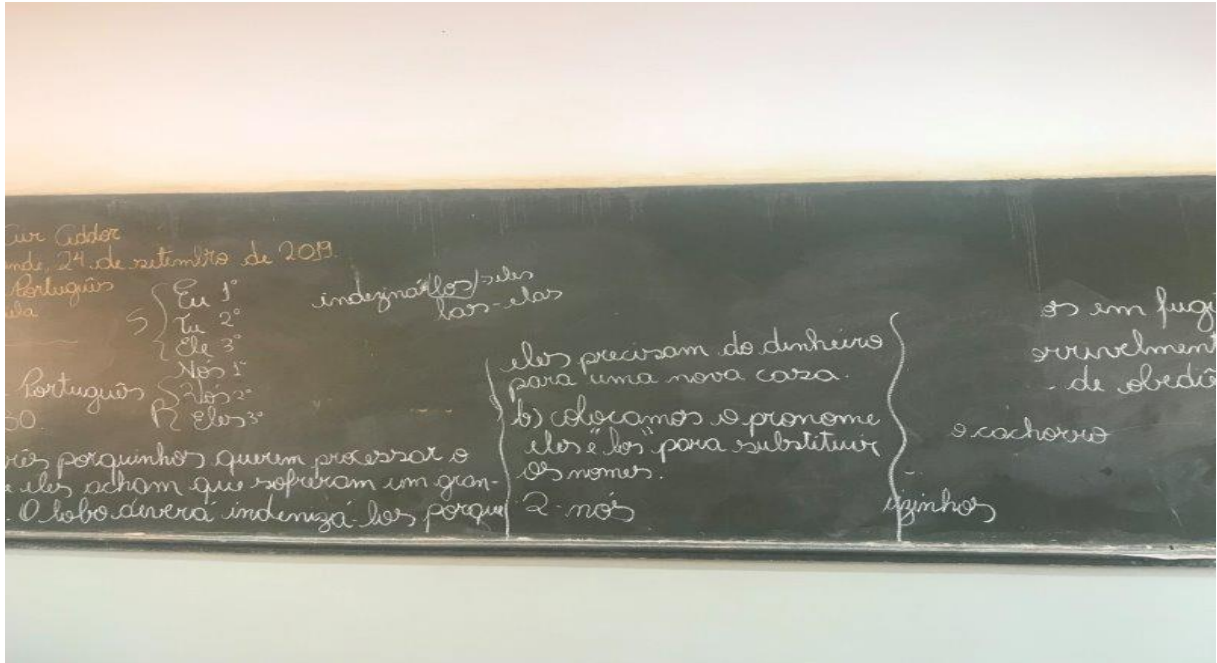 de setembro de 2019.
Português
S
Eu 1°
Tu 2°
Ele 3°
Nós 1°
Vós 2°
P Eles 3°
los/eles
las-elas
Português
porquinhos querem processar o
eles acham que sofreram um gran-
. O lobo deverá indenizá-los porque
eles precisam do dinheiro
para uma nova casa.
b) colocamos o pronome
eles e "los" para substituir
os nomes.
2-nós
os em fugi
de obediê
o cachorro
izinhos